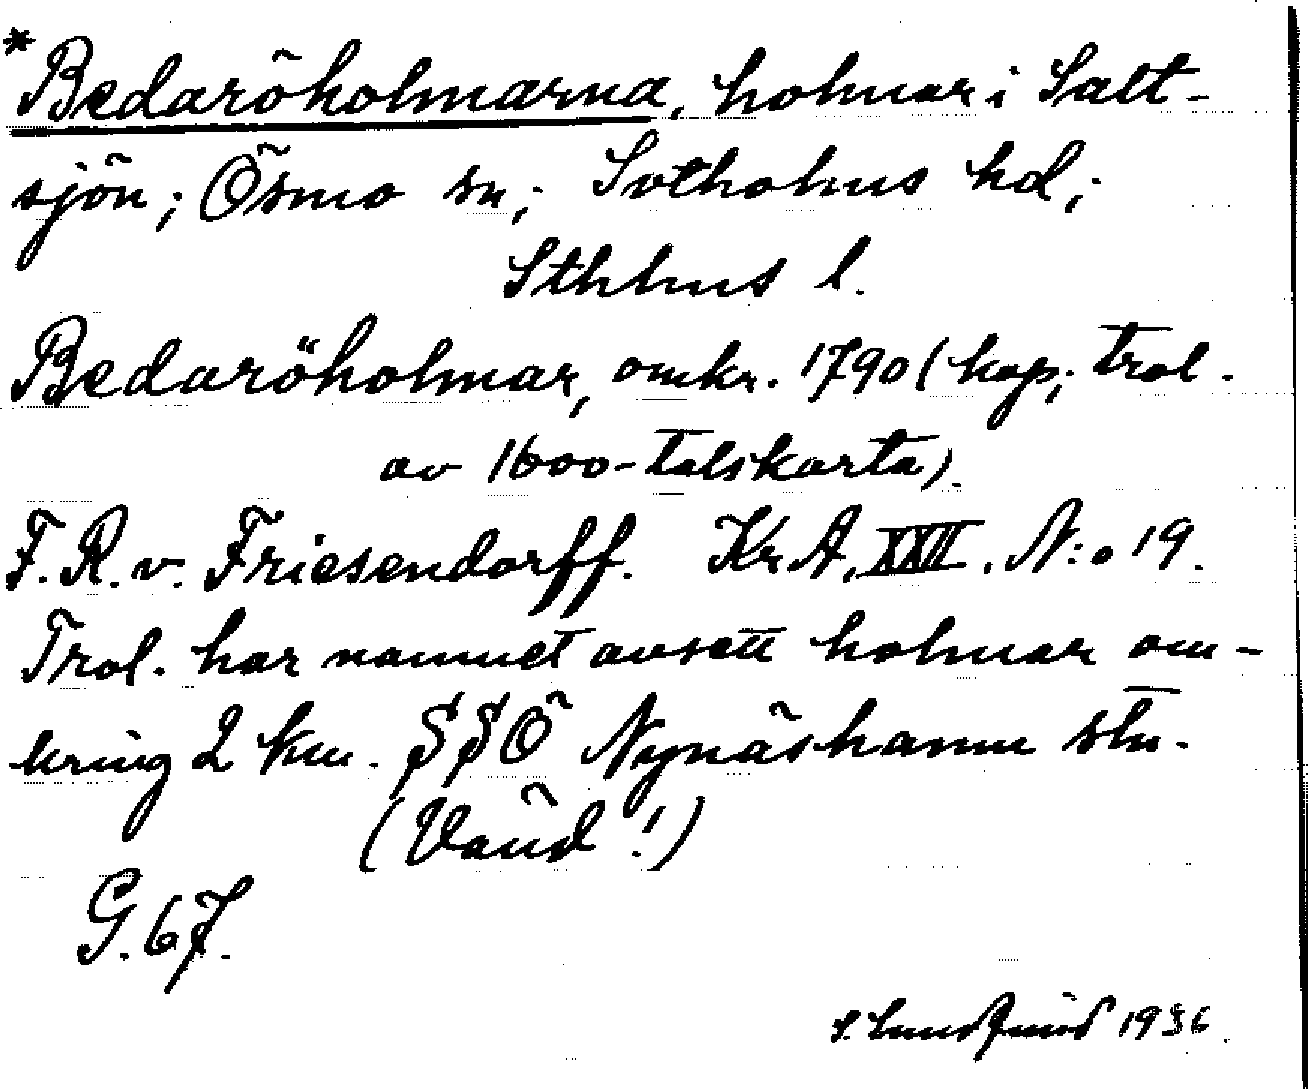 *Bedaröholmarna, holmar i Salt-
sjön; Ösmo sn; Sotholms hd;
Sthlms l.
Bedaröholmar, omkr. 1790 (kop. trol.
av 1600-talskarta).
F.R.v. Friesendorff. Kr.A. XXII. N:o 19.
Trol. har namnet avsett holmar om-
kring 2 km. SSÖ Nynäshamn stn.
(Vänd!)
G.67.
1936